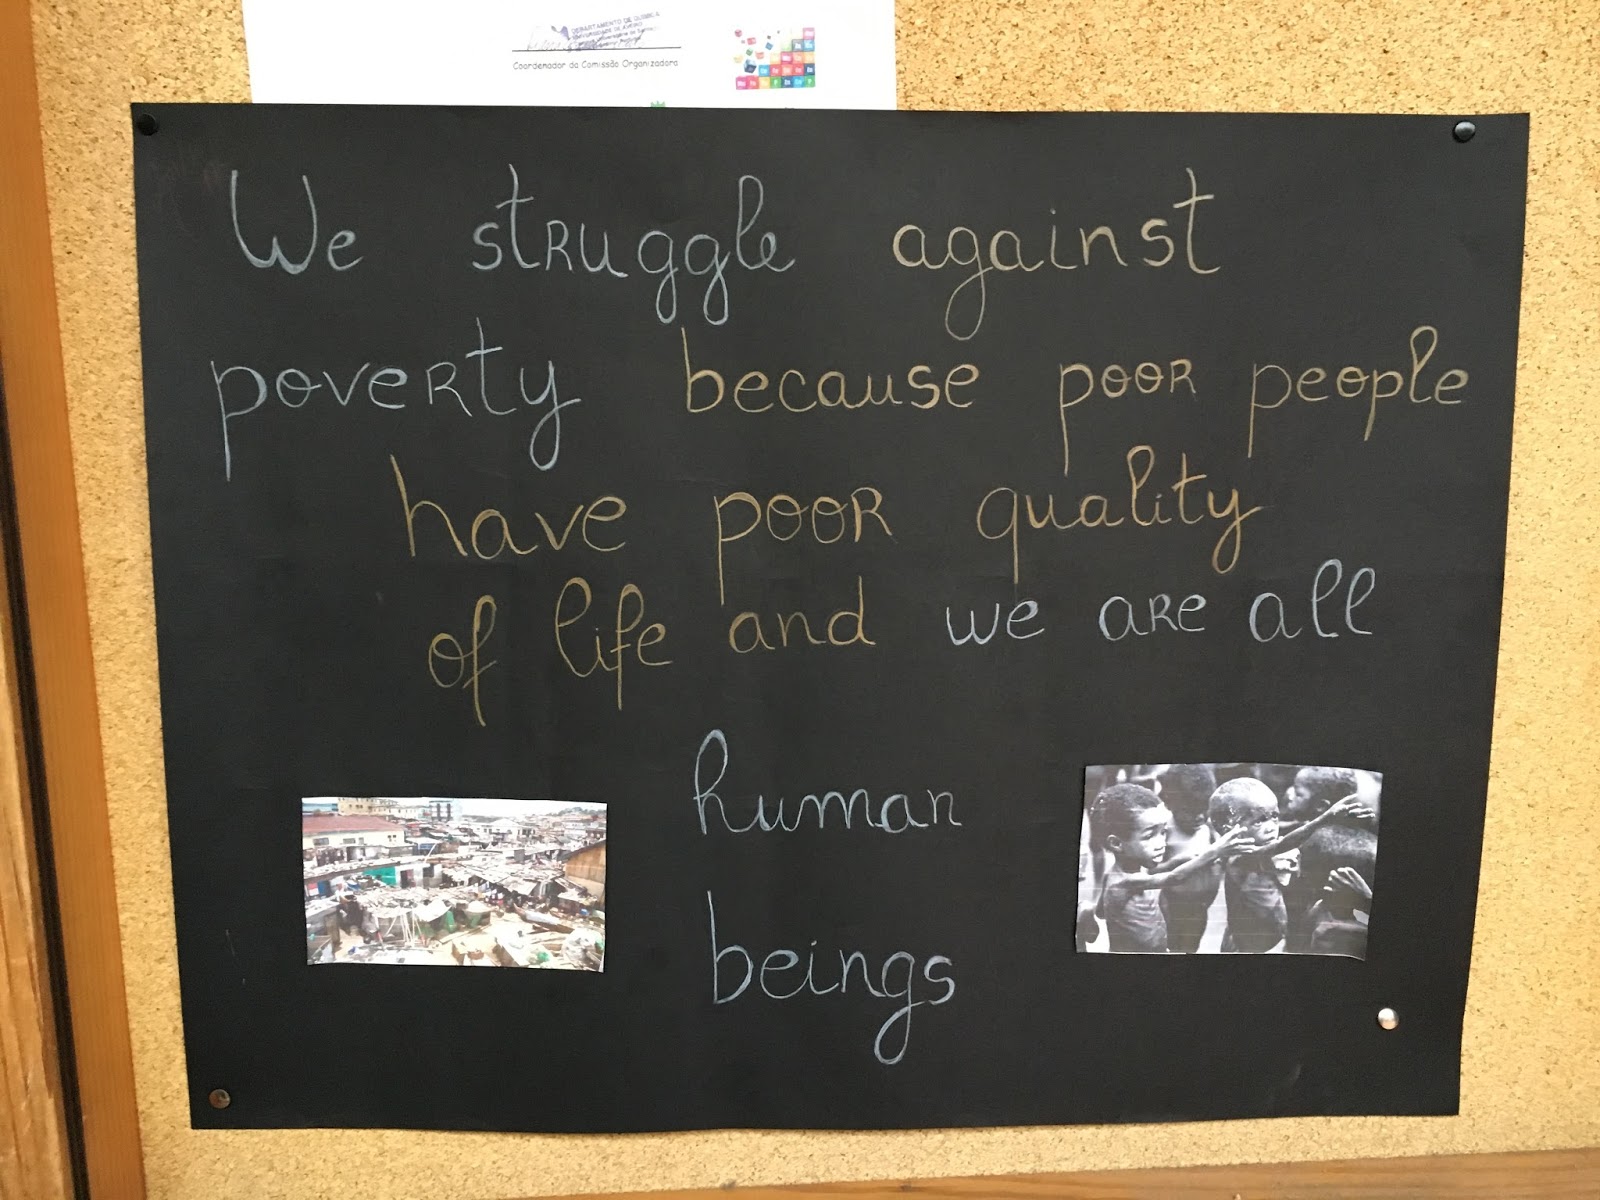 DEPARTAMENTO DE QUÍMICA
UNIVERSIDADE DE AVEIRO
Coordenador da Comissão Organizadora
We struggle against
poverty because poor people
have poor quality
of life and we are all
human
beings